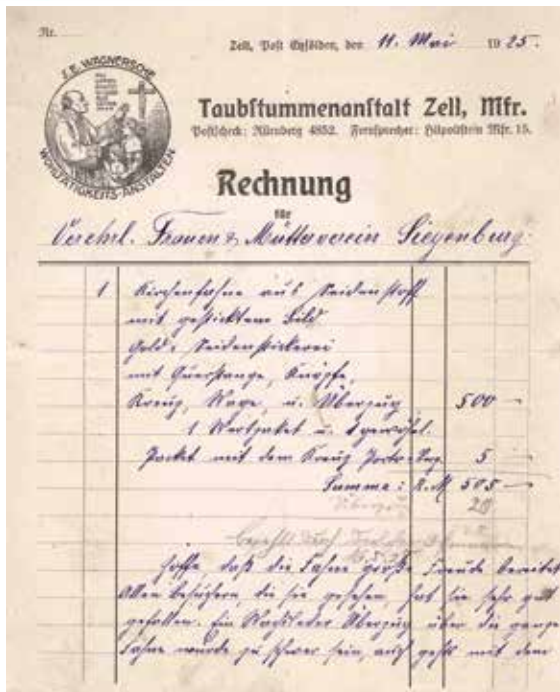 Nr.
Zell, Post Eysölden, den 11. Mai 1925.
J. E. WAGNERSCHE
WOHLTÄTIGKEITS-ANSTALTEN
Taubstummenanstalt Zell, Mfr.
Postscheck: Nürnberg 4852. Fernsprecher: Hilpoltstein Mfr. 15.
Rechnung
für
Verehrl. Frauen & Mütterverein Siegenburg
1 Kirchenfahne aus Seidenstoff
mit gesticktem Bild
Gold & Seidenstickerei
mit Querstange, Knöpfe,
Kreuz, u. Überzug 500 —
1 Wertpaket u. 1 gewöhnl.
Packet mit dem Kreuz Porto 5 —
Summe: R.M 505 —
20
bezahlt durch
Hoffe daß die Fahne große Freude bereitet
Allen Besuchern, die sie gesehen, hat sie sehr gut
gefallen. Ein Wachsleder Überzug über die ganze
Fahne würde zu schwer sein, auch geht mit dem